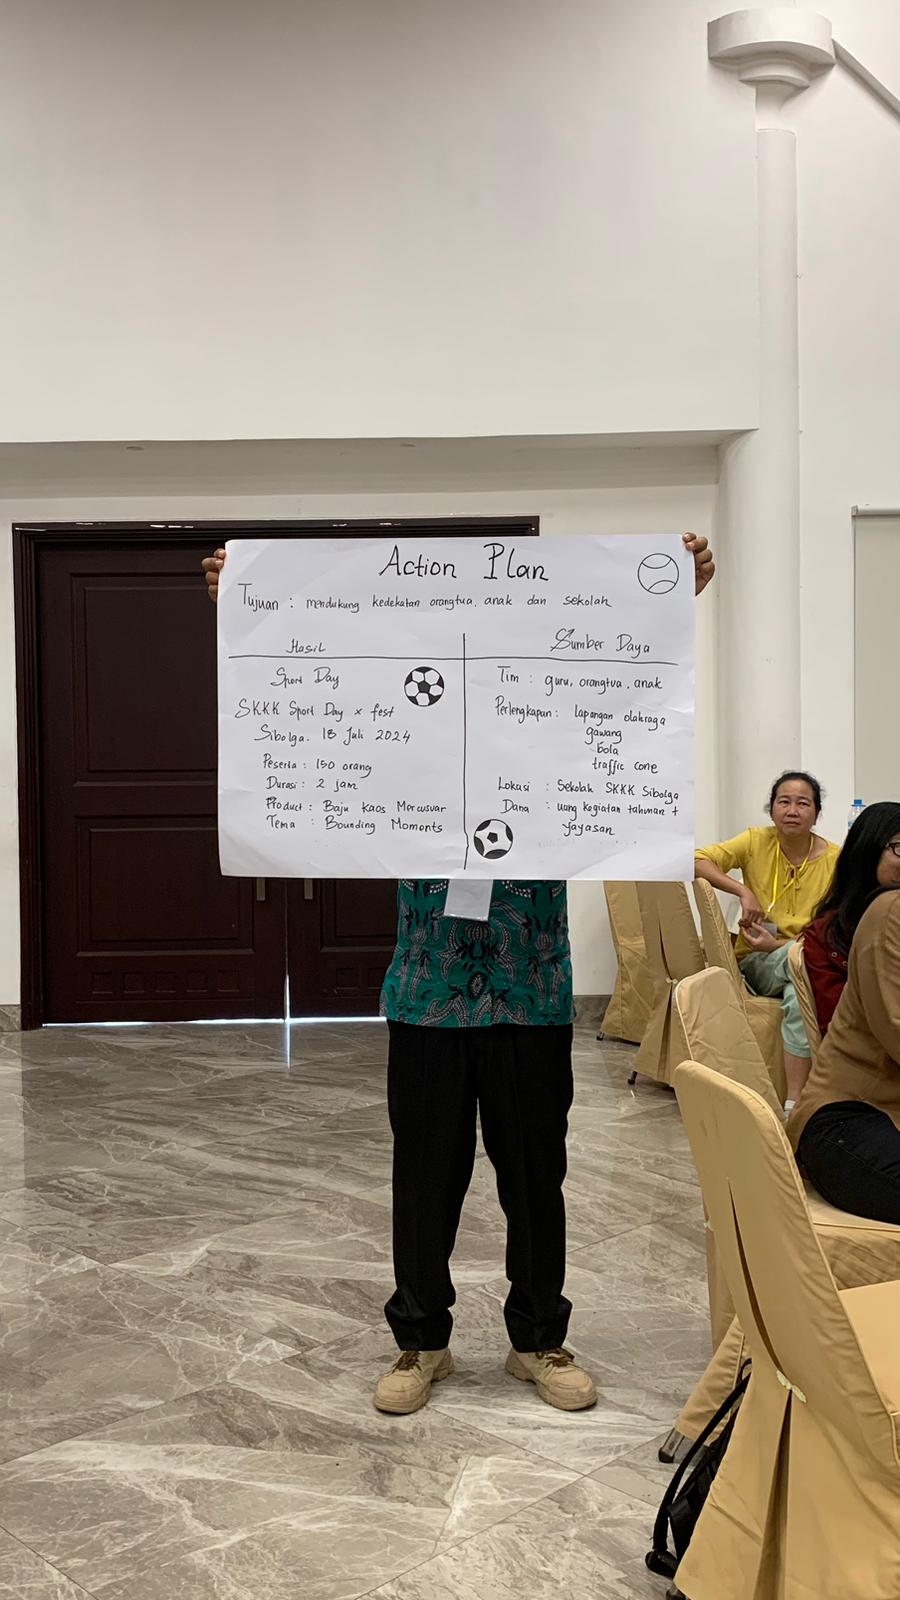 Action Plan
Tujuan : mendukung kedekatan orangtua, anak dan sekolah
Hasil
Sport Day
SKKK Sport Day x fest
Sibolga. 18 Juli 2024
Peserta : 150 orang
Durasi : 2 jam
Product : Baju Kaos Mercusuar
Tema : Bounding Moments
Sumber Daya
Tim : guru, orangtua, anak
Perlengkapan : lapangan olahraga
gawang
bola
traffic cone
Lokasi : Sekolah SKKK Sibolga
Dana : uang kegiatan tahunan +
yayasan